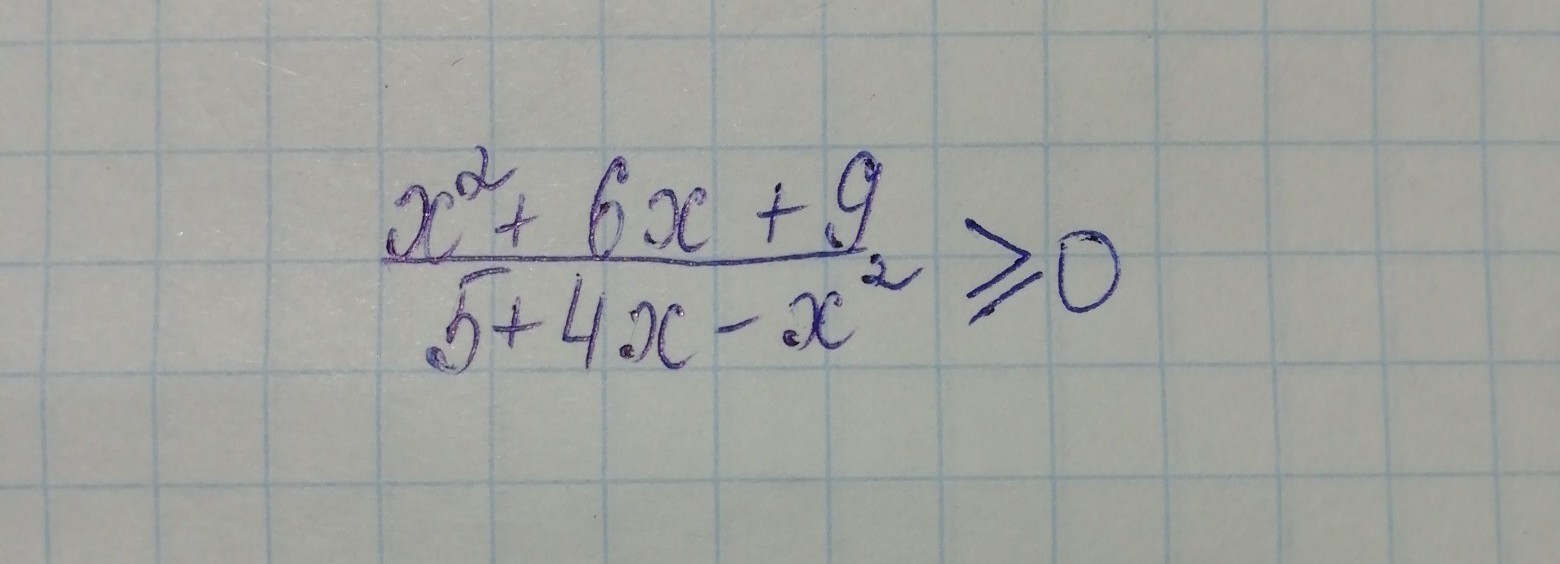 x² + 6x + 9
5 + 4x - x² ⩾ 0